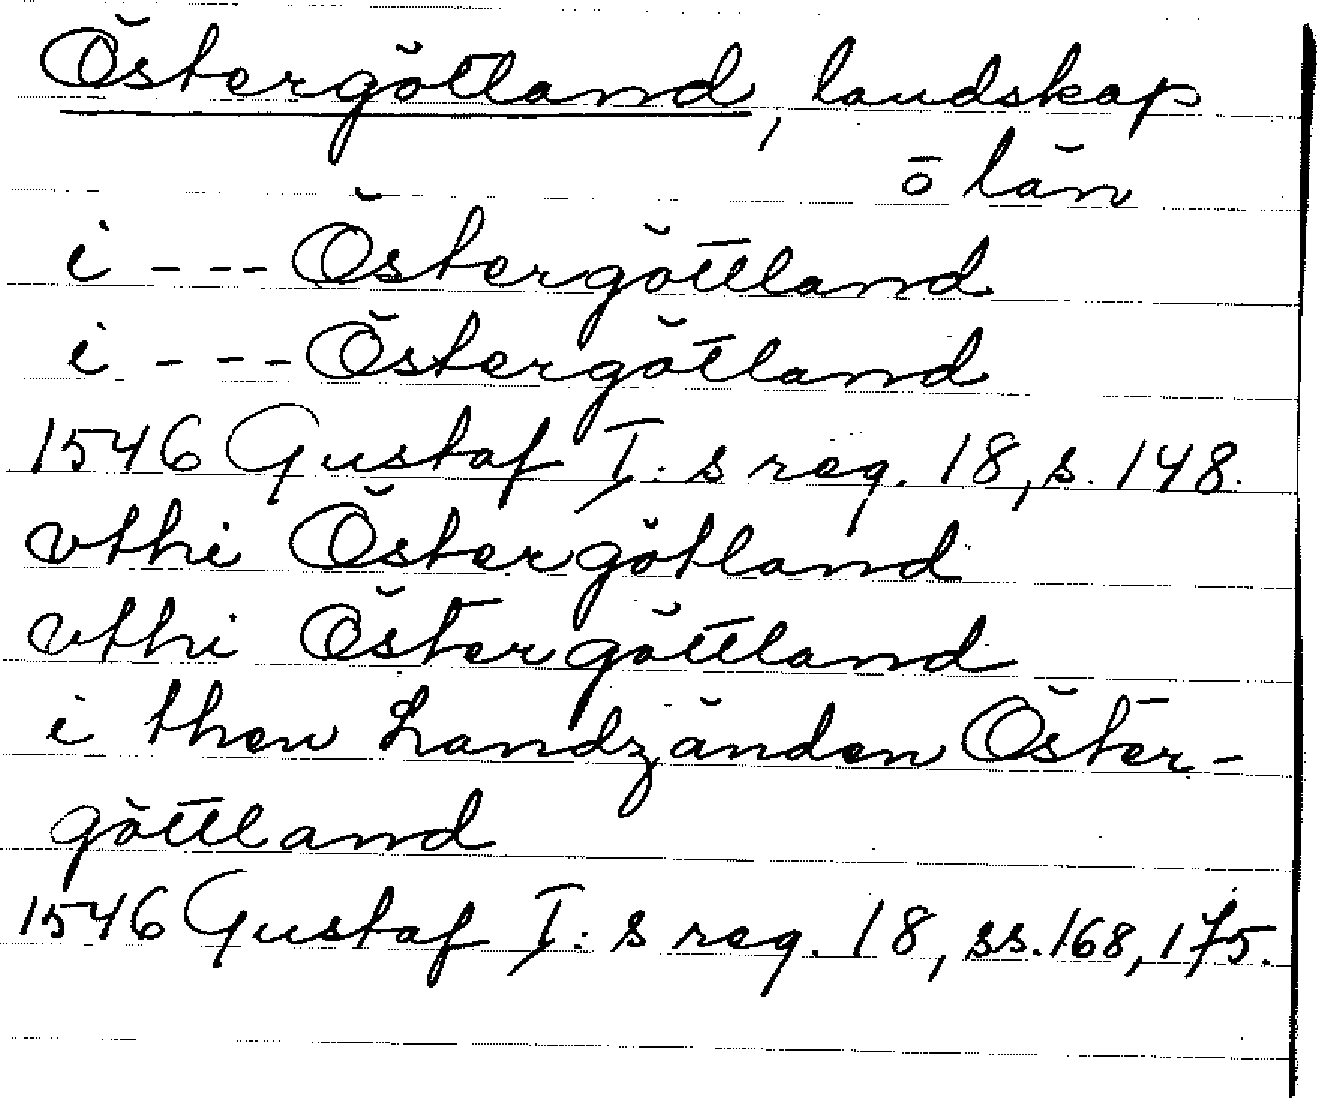 Östergötland, landskap
ō län
i --- Östergöttland
i --- Östergötland
1546 Gustaf I:s reg. 18, s. 148.
vthi Östergötland
vthi Östergöttland
i then Landzänden Öster-
göttland
1546 Gustaf I:s reg. 18, ss. 168, 175.